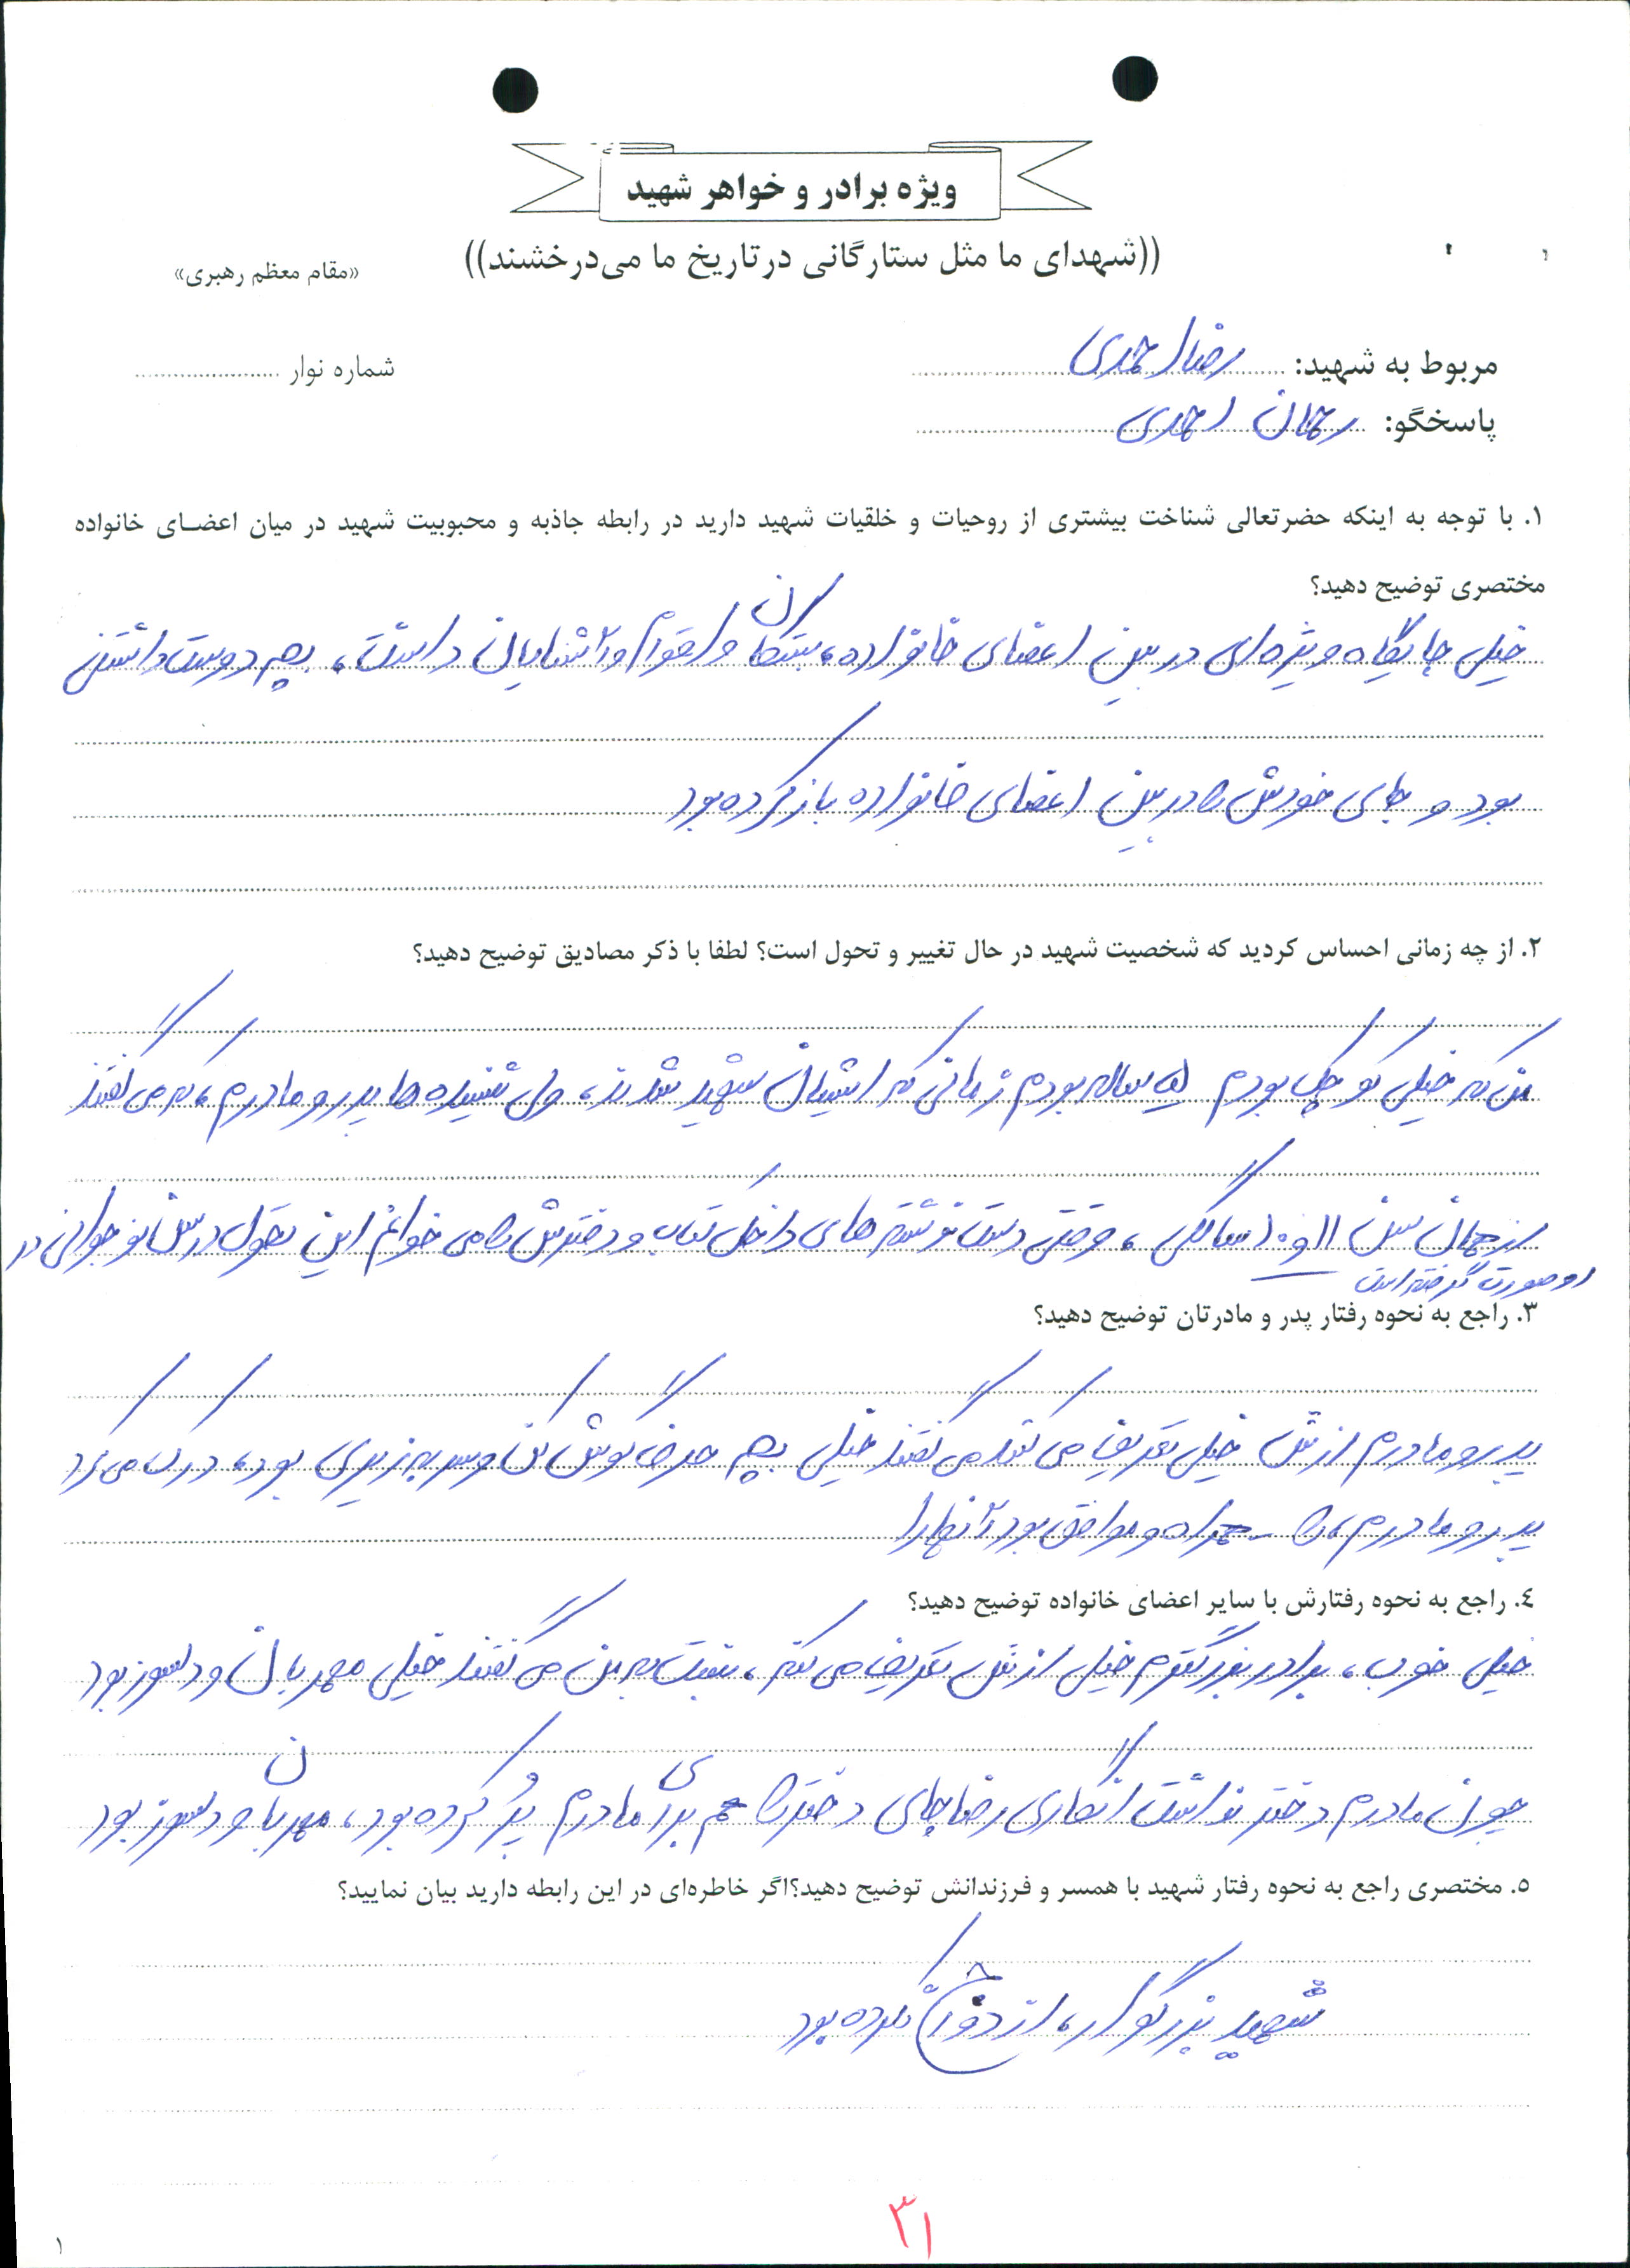 ویژه برادر و خواهر شهید
((شهدای ما مثل ستارگانی در تاریخ ما می‌درخشند))
«مقام معظم رهبری»
مربوط به شهید: رضا احمدی
شماره نوار
پاسخگو: رحمان احمدی
۱. با توجه به اینکه حضرتعالی شناخت بیشتری از روحیات و خلقیات شهید دارید در رابطه جاذبه و محبوبیت شهید در میان اعضای خانواده
مختصری توضیح دهید؟
خیلی جایگاه ویژه‌ای در بین اعضای خانواده، بستگان و اقوام و آشنایان داشت، بچه دوست داشتنی
بود و جای خودش را در بین اعضای خانواده باز کرده بود
۲. از چه زمانی احساس کردید که شخصیت شهید در حال تغییر و تحول است؟ لطفا با ذکر مصادیق توضیح دهید؟
من که خیلی کوچک بودم ساله بودم زمانی که ایشان شهید شدند، ولی شنیده‌ها پدر و مادرم، که می‌گفتند
از همان سن ۱۱ و ۱۰ سالگی، وقتی دست نوشته‌های داخل کتاب و دفترش را می‌خوانم این تحول در سن نوجوانی در
او صورت گرفته است
۳. راجع به نحوه رفتار پدر و مادرتان توضیح دهید؟
پدر و مادرم ازش خیلی تعریف می‌کنند می‌گفتند خیلی بچه حرف گوش کن و سر به زیری بود، درک می‌کرد
پدر و مادرم را همراه و موافق بود آنها را
٤. راجع به نحوه رفتارش با سایر اعضای خانواده توضیح دهید؟
خیلی خوب، برادر بزرگترم خیلی ازش تعریف می‌کنه، نسبت به من می‌گفتند خیلی مهربان و دلسوز بود
چون مادرم دختر نداشت انگاری رضا جای دختر را هم برای مادرم پُر کرده بود، مهربان و دلسوز بود
۵. مختصری راجع به نحوه رفتار شهید با همسر و فرزندانش توضیح دهید؟اگر خاطره‌ای در این رابطه دارید بیان نمایید؟
شهید بزرگوار، ازدواج نکرده بود
۳۱
۱